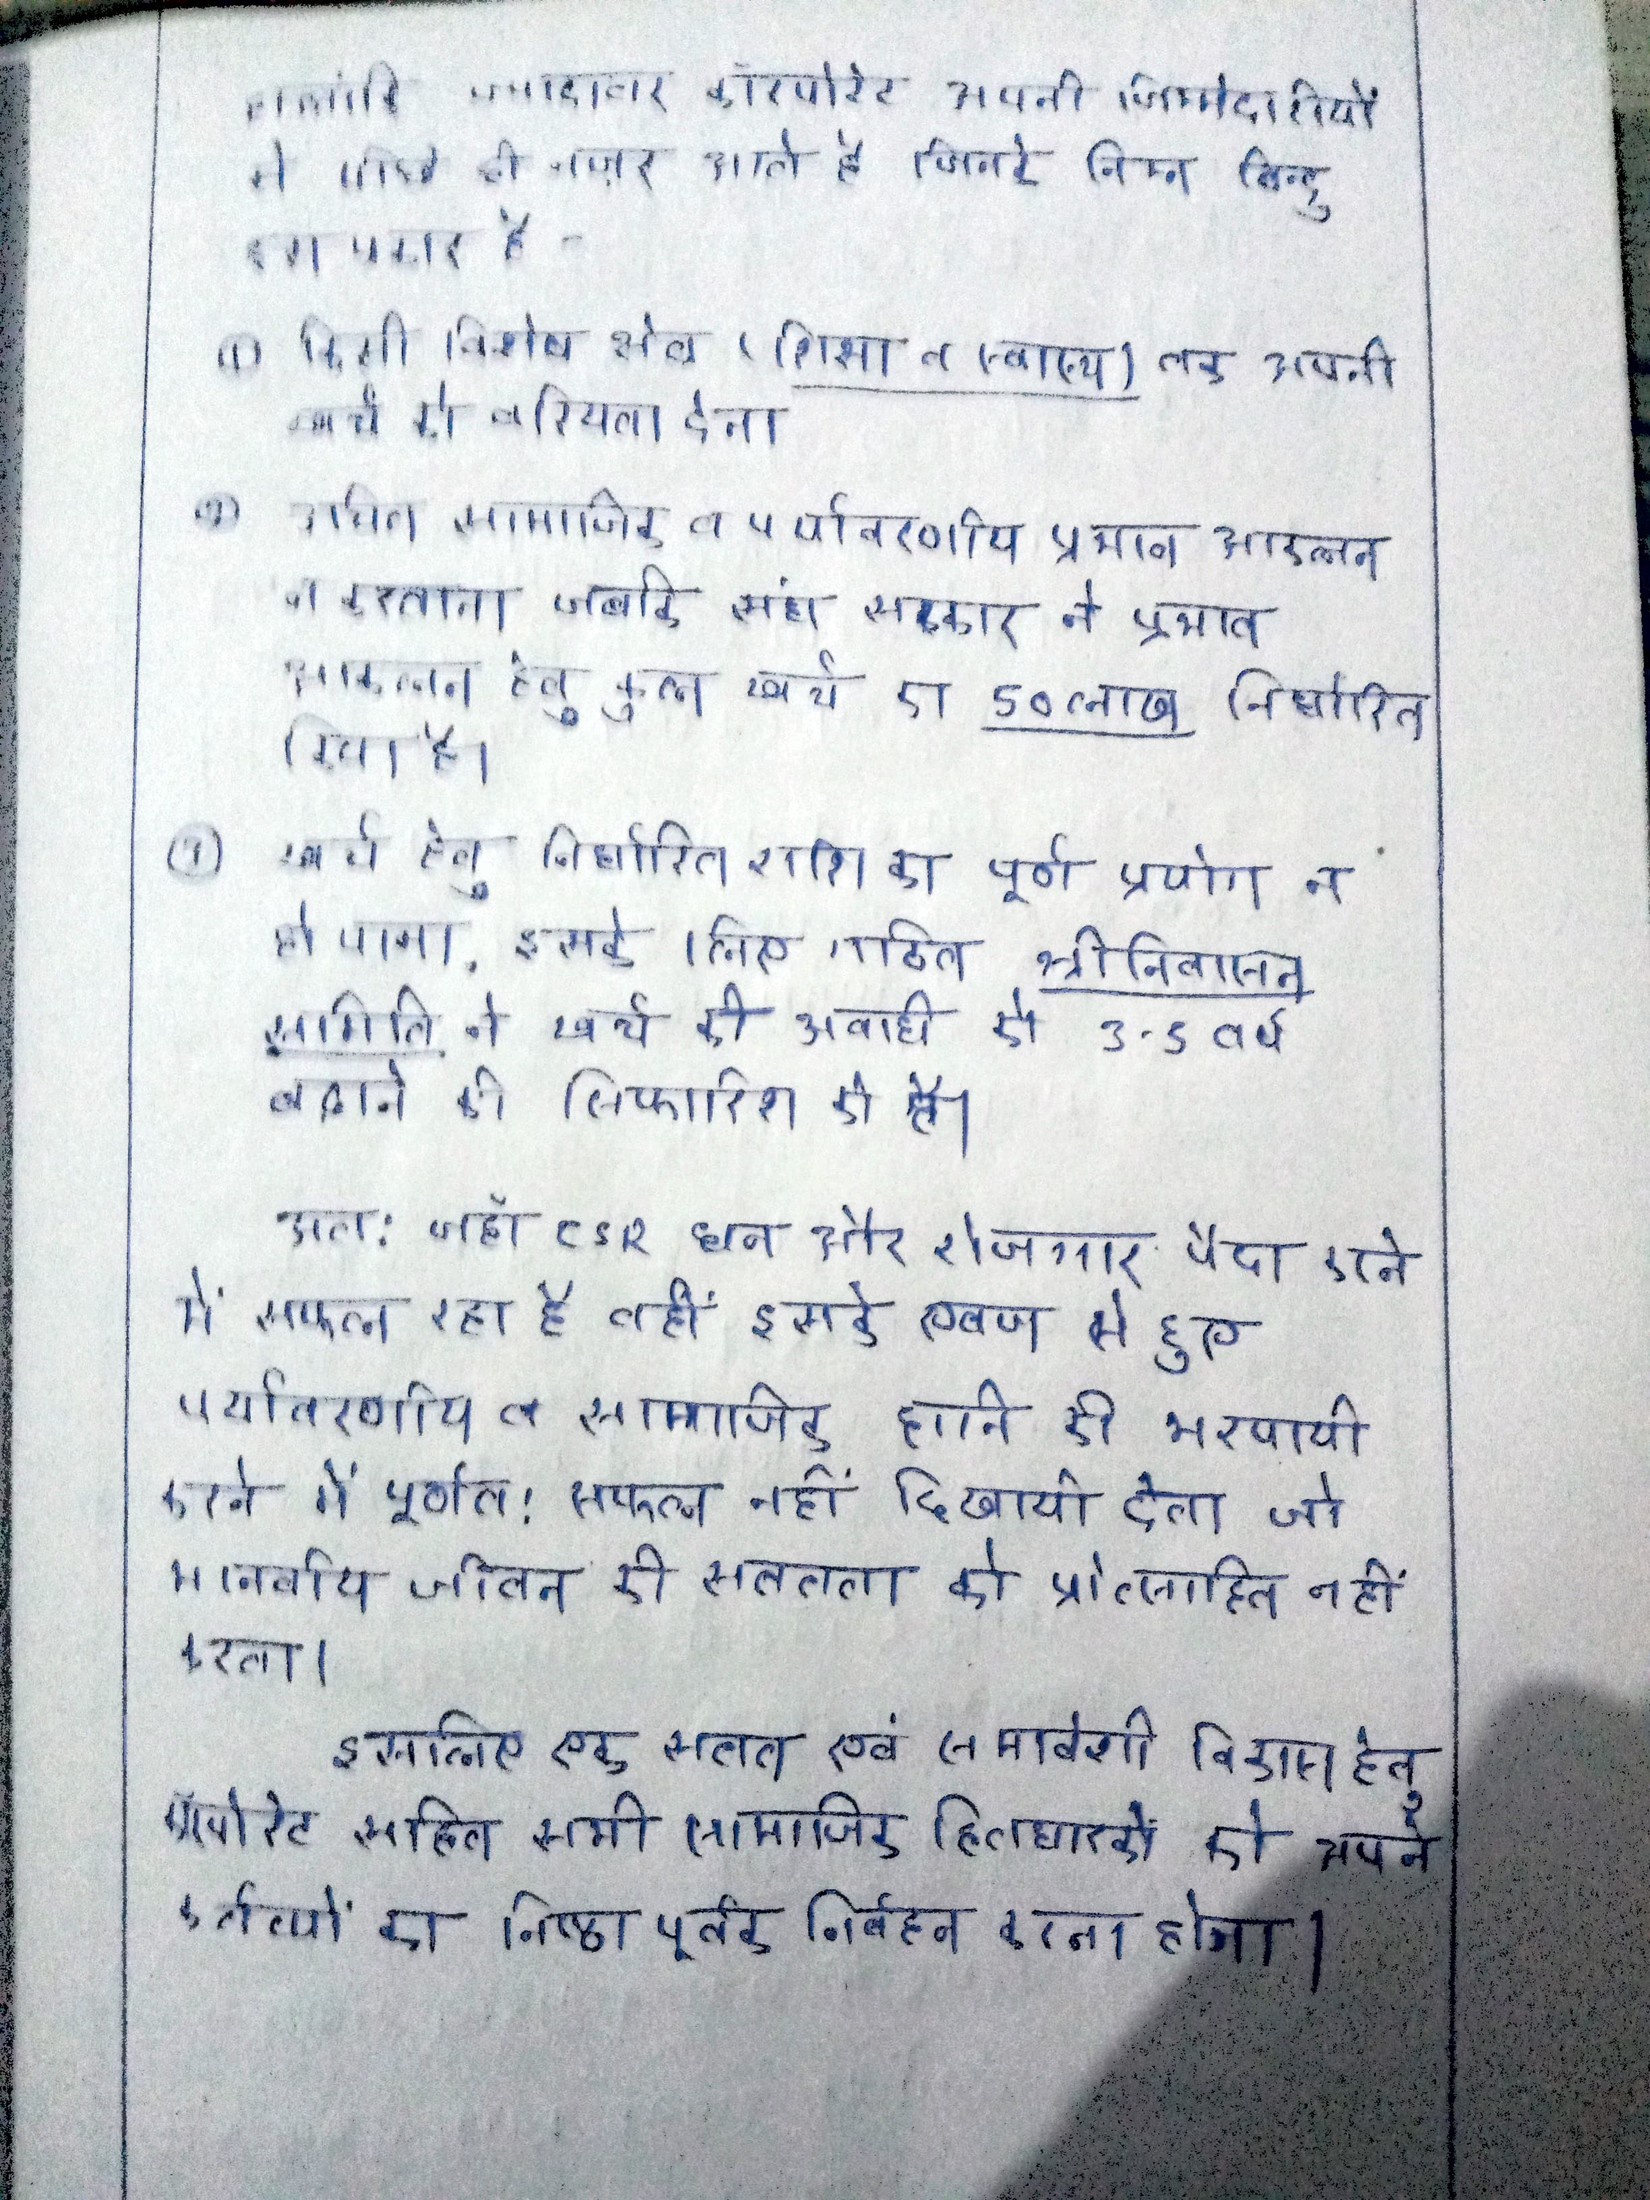 हालांकि ज्यादातर कॉरपोरेट अपनी जिम्मेदारियों
से पीछे ही नज़र आते है जिनके निम्न बिन्दु
इस प्रकार है -
(1) किसी विशेष क्षेत्र (शिक्षा व स्वास्थ्य) तक अपनी
खर्च को वरियता देना
(2) उचित सामाजिक व पर्यावरणीय प्रभाव आकलन
न करवाना जबकि संघ सरकार ने प्रभाव
आकलन हेतु कुल खर्च का 50 लाख निर्धारित
किया है।
(3) खर्च हेतु निर्धारित राशि का पूर्ण प्रयोग न
हो पाना, इसके लिए गठित श्रीनिवासन
समिति ने खर्च की अवधी को 3-5 वर्ष
बढाने की सिफारिश की है।
अतः जहाँ CSR धन और रोजगार पैदा करने
में सफल रहा है वहीं इसके एवज से हुए
पर्यावरणीय व सामाजिक हानि की भरपायी
करने में पूर्णतः सफल नहीं दिखायी देता जो
मानवीय जीवन की सततता को प्रोत्साहित नहीं
करता।
इसलिए एक सतत एवं समावेशी विकास हेतु
कॉर्पोरेट सहित सभी सामाजिक हितधारकों को अपने
कर्तव्यों का निष्ठा पूर्वक निर्वहन करना होगा।